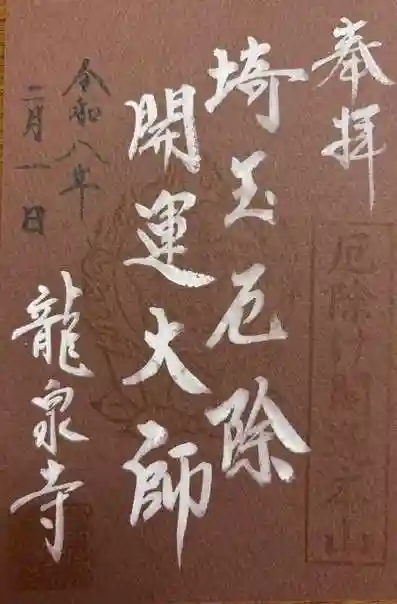 奉拝
埼玉厄除
開運大師
令和八年
二月一日
龍泉寺